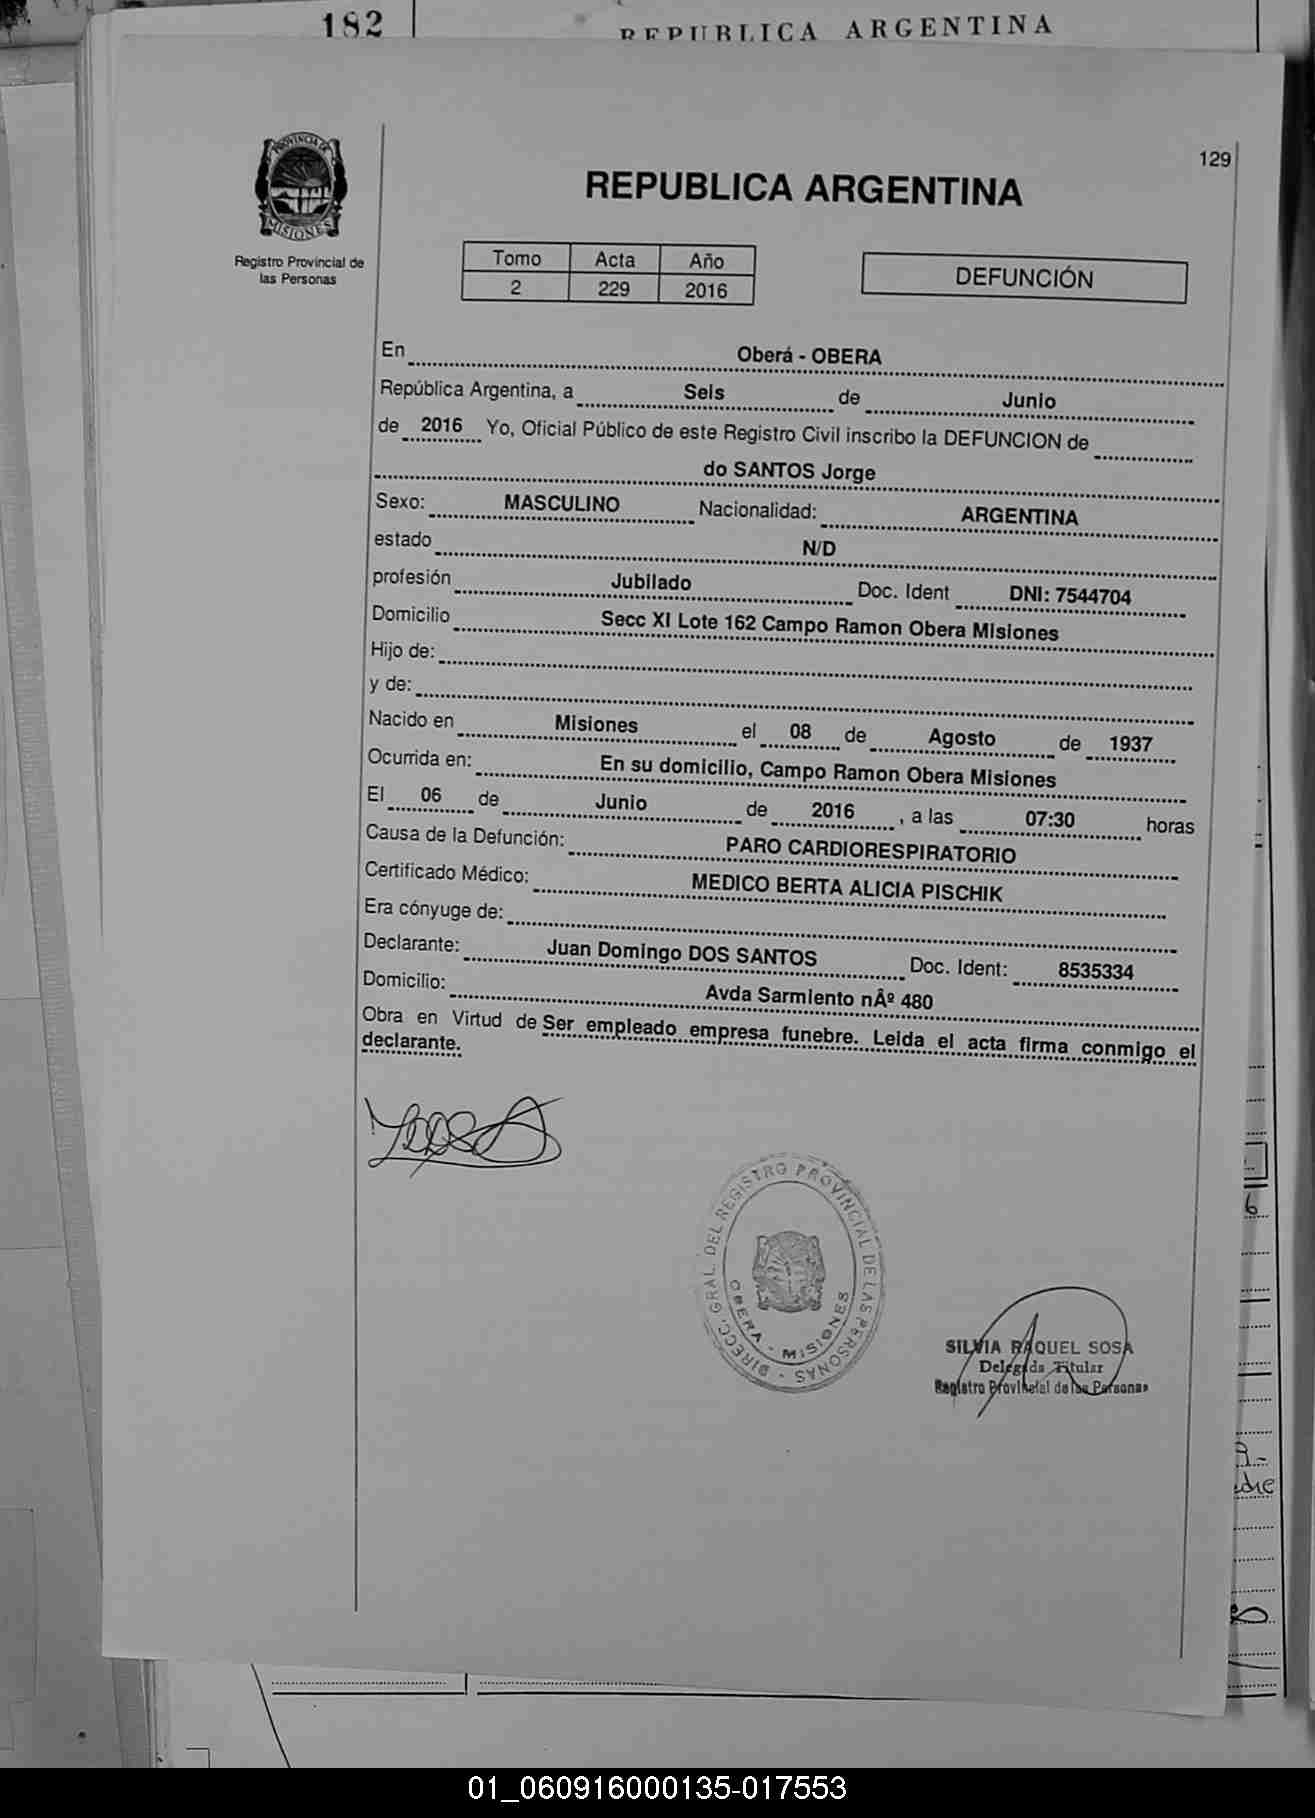 182
REPUBLICA ARGENTINA
129
PROVINCIA DE
MISIONES
Registro Provincial de
las Personas
REPUBLICA ARGENTINA
Tomo Acta Año
2 229 2016
DEFUNCIÓN
En Oberá - OBERA
República Argentina, a Seis de Junio
de 2016 Yo, Oficial Público de este Registro Civil inscribo la DEFUNCION de
do SANTOS Jorge
Sexo: MASCULINO Nacionalidad: ARGENTINA
estado N/D
profesión Jubilado Doc. Ident DNI: 7544704
Domicilio Secc XI Lote 162 Campo Ramon Obera Misiones
Hijo de:
y de:
Nacido en Misiones el 08 de Agosto de 1937
Ocurrida en: En su domicilio, Campo Ramon Obera Misiones
El 06 de Junio de 2016 , a las 07:30 horas
Causa de la Defunción: PARO CARDIORESPIRATORIO
Certificado Médico: MEDICO BERTA ALICIA PISCHIK
Era cónyuge de:
Declarante: Juan Domingo DOS SANTOS Doc. Ident: 8535334
Domicilio: Avda Sarmiento nÂº 480
Obra en Virtud de Ser empleado empresa funebre. Leida el acta firma conmigo el
declarante.
DIRECC. GRAL. DEL REGISTRO PROVINCIAL DE LAS PERSONAS -
OBERA - MISIONES
SILVIA RAQUEL SOSA
Delegada Titular
Registro Provincial de las Personas
01_060916000135-017553